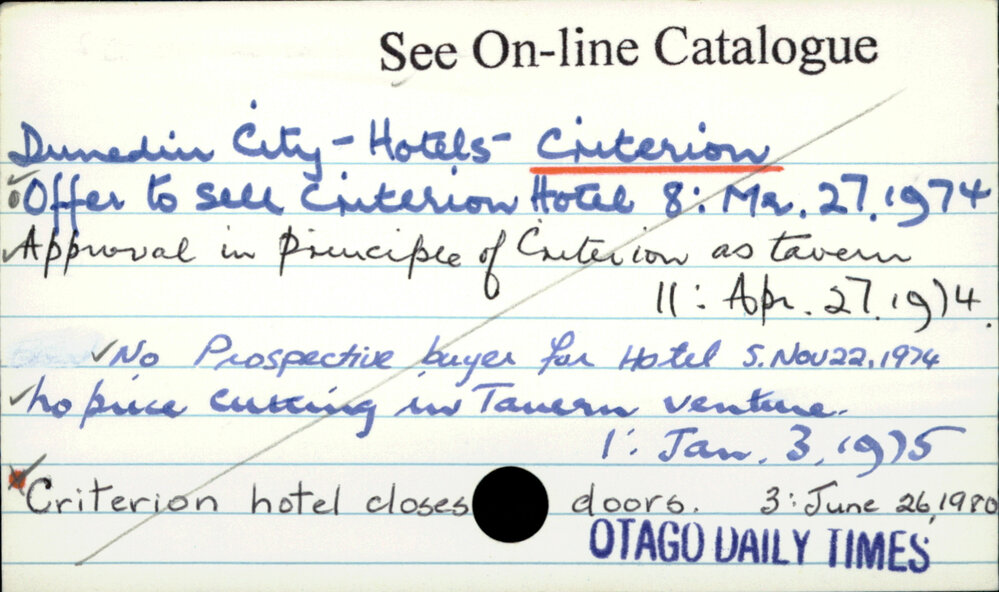 See On-line Catalogue
Dunedin City - Hotels - Criterion
Offer to sell Criterion Hotel 8: Mr. 27. 1974
Approval in principle of Criterion as tavern
11: Apr. 27. 1974.
No Prospective buyer for Hotel 5. Nov 22, 1974
No price cutting in Tavern venture.
1: Jan. 3, 1975
Criterion hotel closes doors. 3: June 26, 1980
OTAGO DAILY TIMES